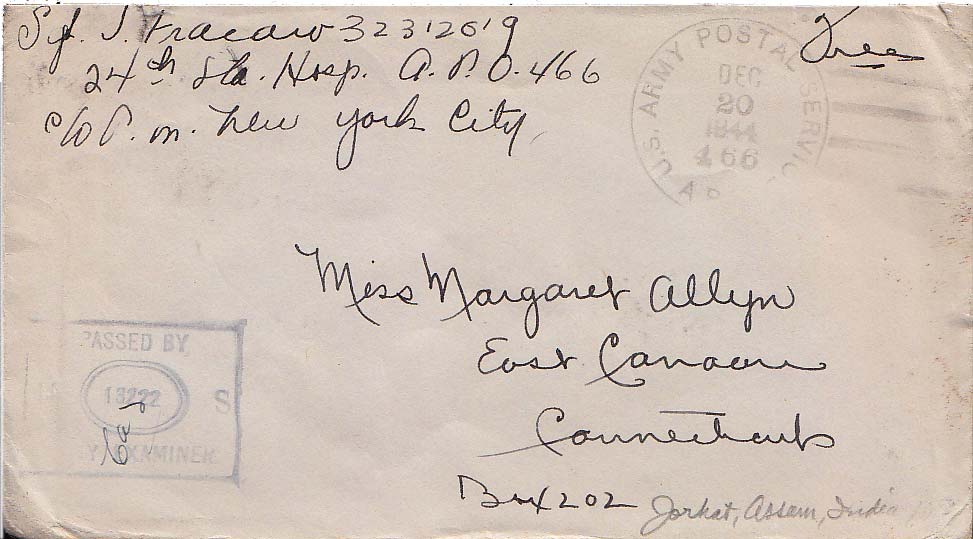 Sgt. J. Fracaro 32312619
24th Sta. Hosp. A.P.O. 466
c/o P.M. New York City,
Free
U.S. ARMY POSTAL SERVIC
DEC
20
1944
466
AP
Miss Margaret Allyn
East Canaan
Connecticut
Box 202
Jorhat, Assam, India
PASSED BY
13222
S
Y EXAMINER